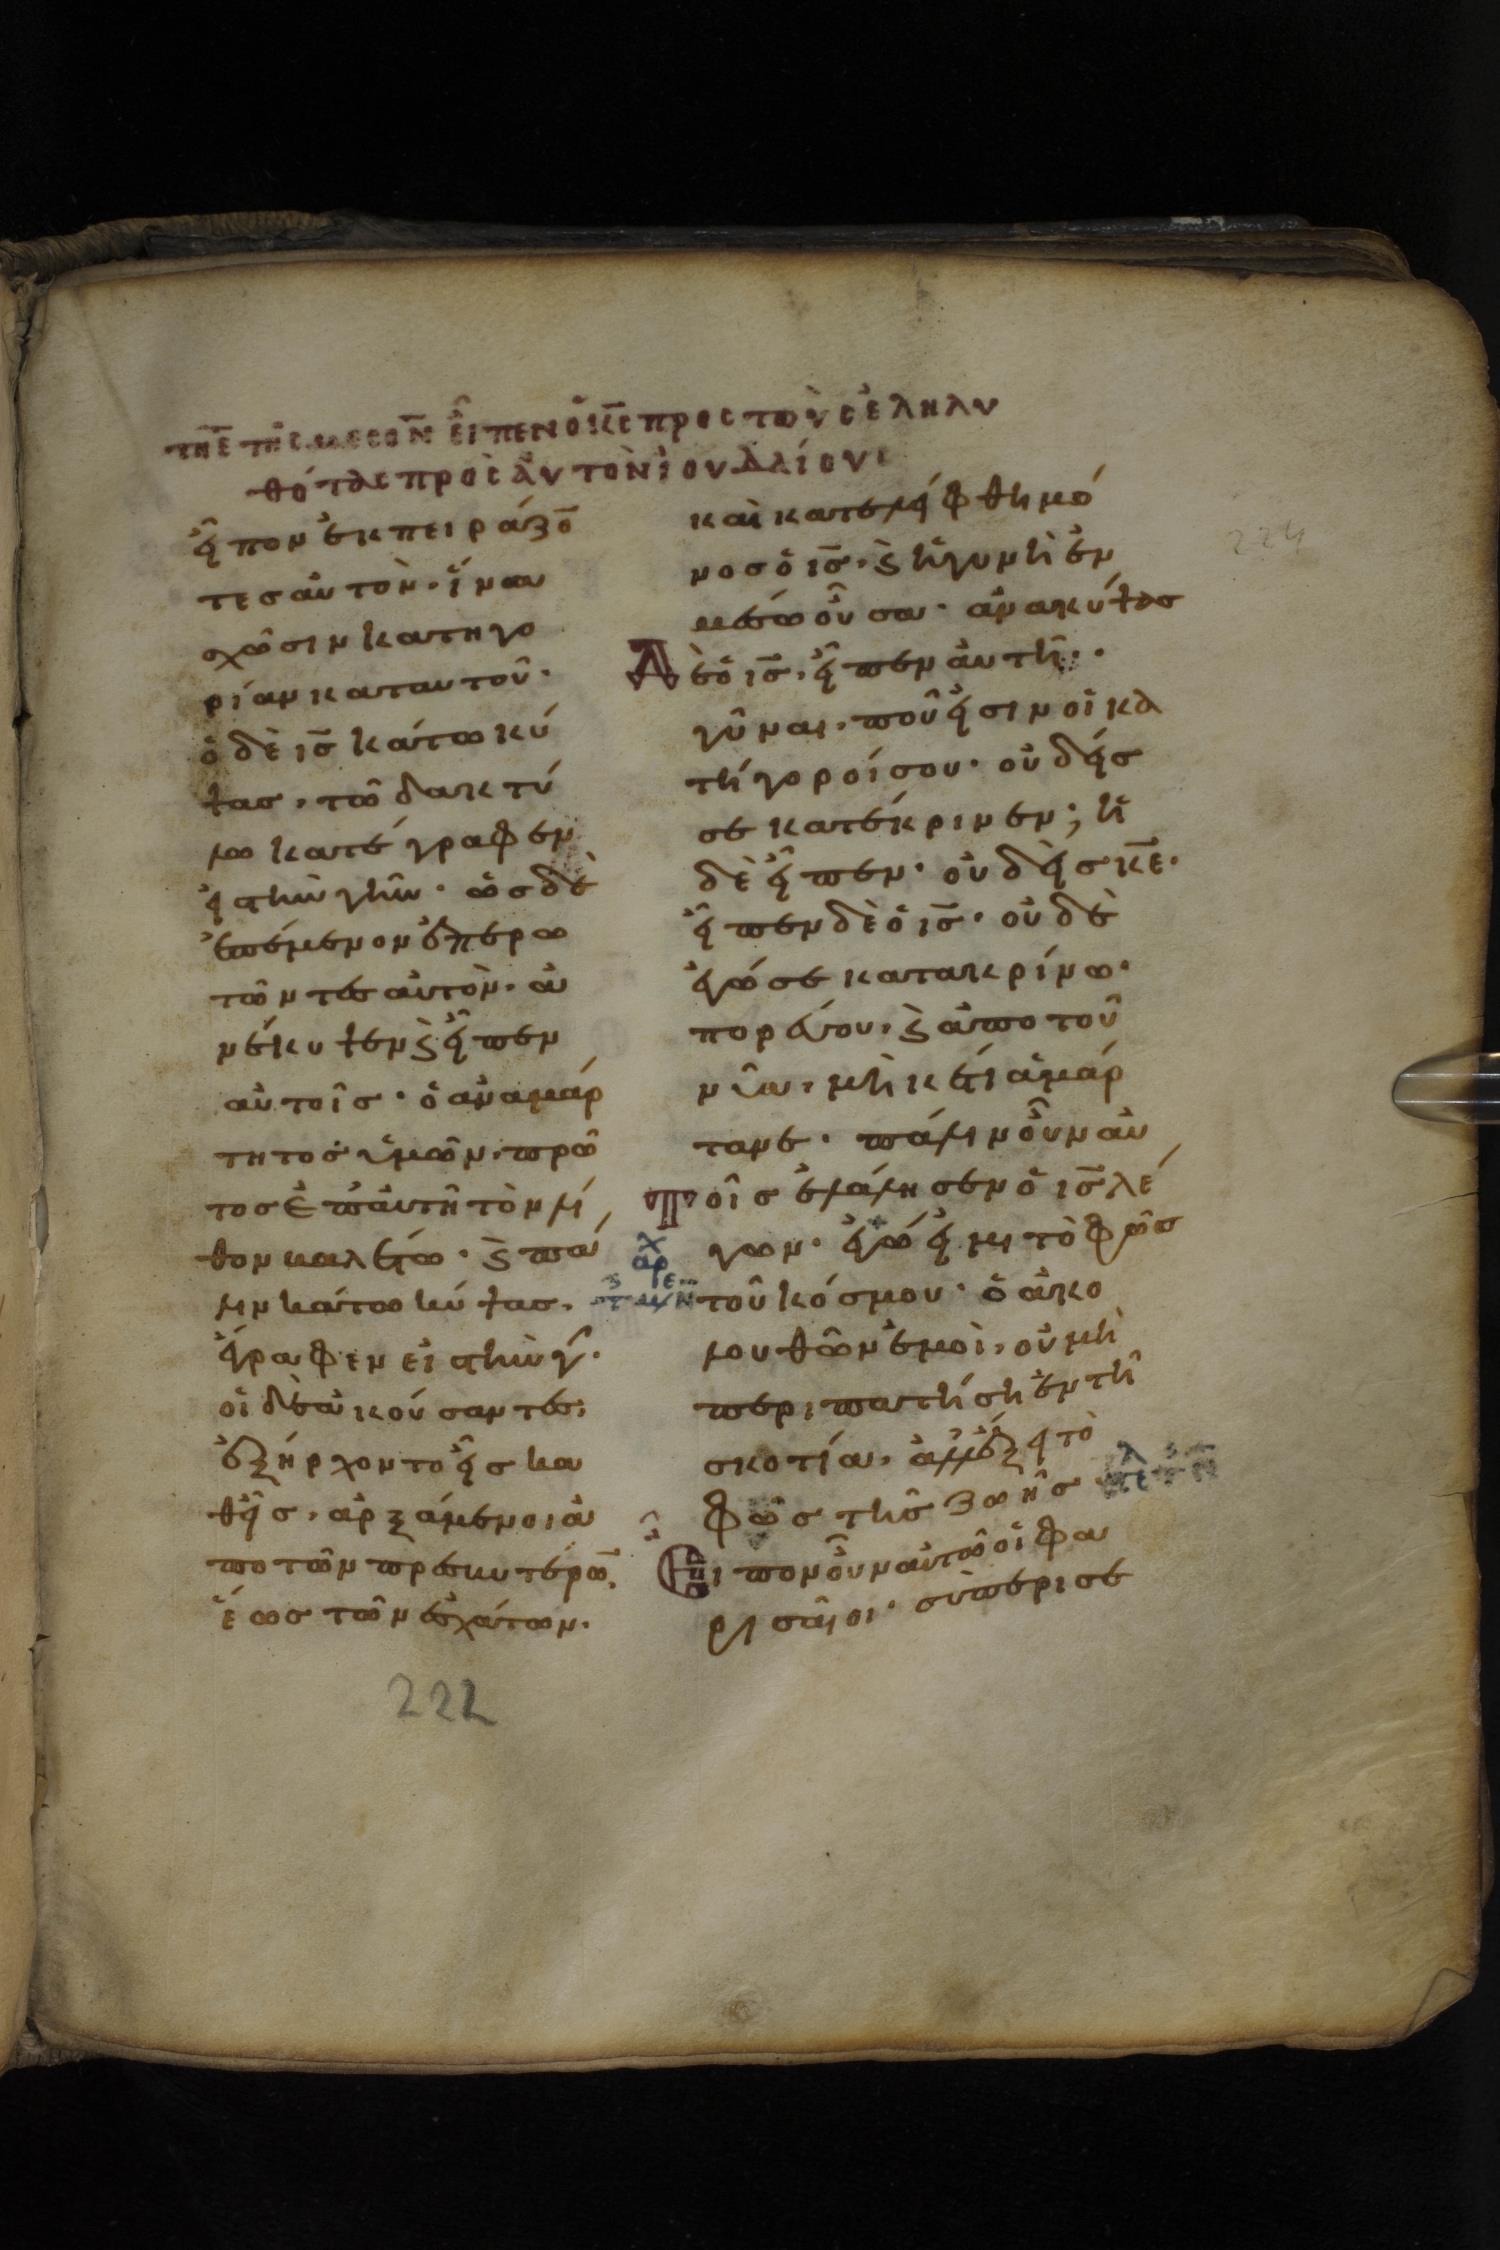 τῆ ε̄ τῆς μεσον̄ εἶπεν ὁ κ̄ς προς τοὺς ἐληλυ
θότας προς ἀυτὸν ἰουδαίους
εἶπον ἐκπειράζο̄
τες αὐτὸν. ἵνα
σχῶσιν κατηγο
ρίαν κατ αυτοῦ.
ὁ δὲ ις̄ κάτω κύ
ψας, τῶ δακτύ
λω κατέγραφεν
εἰς τὴν γῆν. ὡς δὲ
ἐπέμενον ἐπερω
τῶντες αὐτὸν. ἀ
νέκυψεν ϗ εἶπεν
αὐτοῖς. ὁ ἀναμάρ
τητος ὑμῶν, πρῶ
τος ἐπ' αυτῆ τὸν λί
θον βαλέτω. ϗ πά
λιν κάτω κύψας,
ἔγραφεν εἰς τὴν γῆ.
οἱ δὲ ἀκούσαντες,
ἐξήρχοντο εἷς κα
θεῖς, ἀρξάμενοι ἀ
πο τῶν πρεσβυτέρω̄,
ἕως τῶν ἐσχάτων.
καὶ κατελείφθη μό
νος ὁ ις̄. ϗ ἡ γυνὴ ἐν
μέσω οὖσα. ἀνακύψας
δὲ ὁ ις̄, εἶπεν ἀυτῆ.
γύναι, ποῦ εἰσιν οἱ κα
τήγοροί σου. οὐδείς
σε κατέκρινεν; ἡ
δὲ εἶπεν. οὐδεὶς κε̄.
εἶπεν δὲ ὁ ις̄. οὐδὲ
ἐγώ σε κατακρίνω.
πορεύου, ϗ ἀπο τοῦ
νῦν, μὴκέτι ἁμάρ
τανε. πάλιν οὖν αὐ
τοῖς ἐλάλησεν ὁ ις̄ λέ
γων. ἐγώ εἰμι τὸ φῶς
τοῦ κόσμου. ὁ ἀκο
λουθῶν ἐμοὶ, οὐ μὴ
περιπατήση ἐν τῆ
σκοτία, ἀλλ' ἕξει τὸ
φῶς τῆς ζωῆς.
Εἶπον οὖν αὐτῶ οἱ φα
ρισαῖοι. σὺ περι σε
222
224